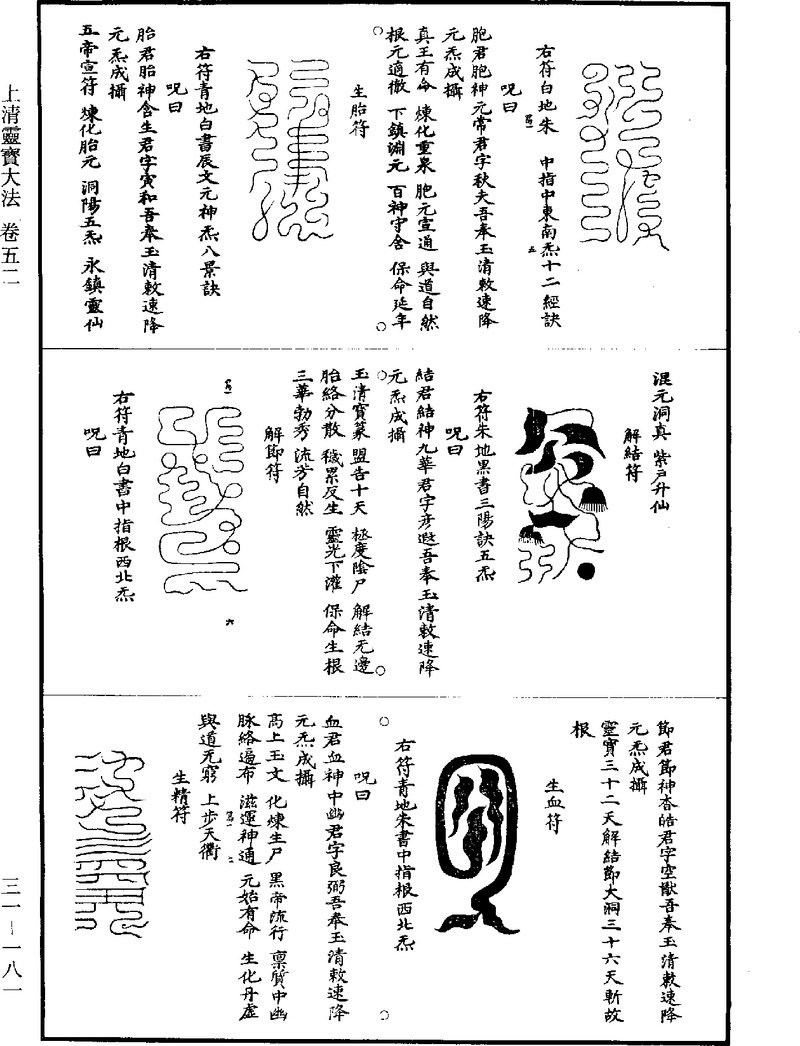 右符白地朱　中指中東南炁十二經訣
呪曰
胞君胞神元常君字秋夫吾奉玉清敕速降
元炁成攝
真王有命　煉化重泉　胞元宣通　與道自然
根元適徹　下鎮淵元　百神守舍　保命延年
生胎符
右符青地白書辰文元神炁八景訣
呪曰
胎君胎神含生君字寅和吾奉玉清敕速降
元炁成攝
五帝宣符　煉化胎元　洞陽五炁　永鎮靈仙
混元洞真　紫戶升仙
解結符
右符朱地黑書三陽訣五炁
呪曰
結君結神九華君字彥遐吾奉玉清敕速降
元炁成攝
玉清寶篆　盟告十天　極度陰尸　解結无邊
胎絡分散　穢累反生　靈光下灌　保命生根
三華勃秀　流芳自然
解節符
右符青地白書中指根西北炁
呪曰
節君節神杳皓君字空猷吾奉玉清敕速降
元炁成攝
靈寶三十二天解結節大洞三十六天斬故
根
生血符
右符青地朱書中指根西北炁
呪曰
血君血神中幽君字良弼吾奉玉清敕速降
元炁成攝
高上玉文　化煉生尸　黑帝流行　稟質中幽
脉絡遍布　滋運神通　元始有命　生化丹虛
與道无窮　上步天衢
生精符
上清靈寶大法　卷五二
三一－一八一